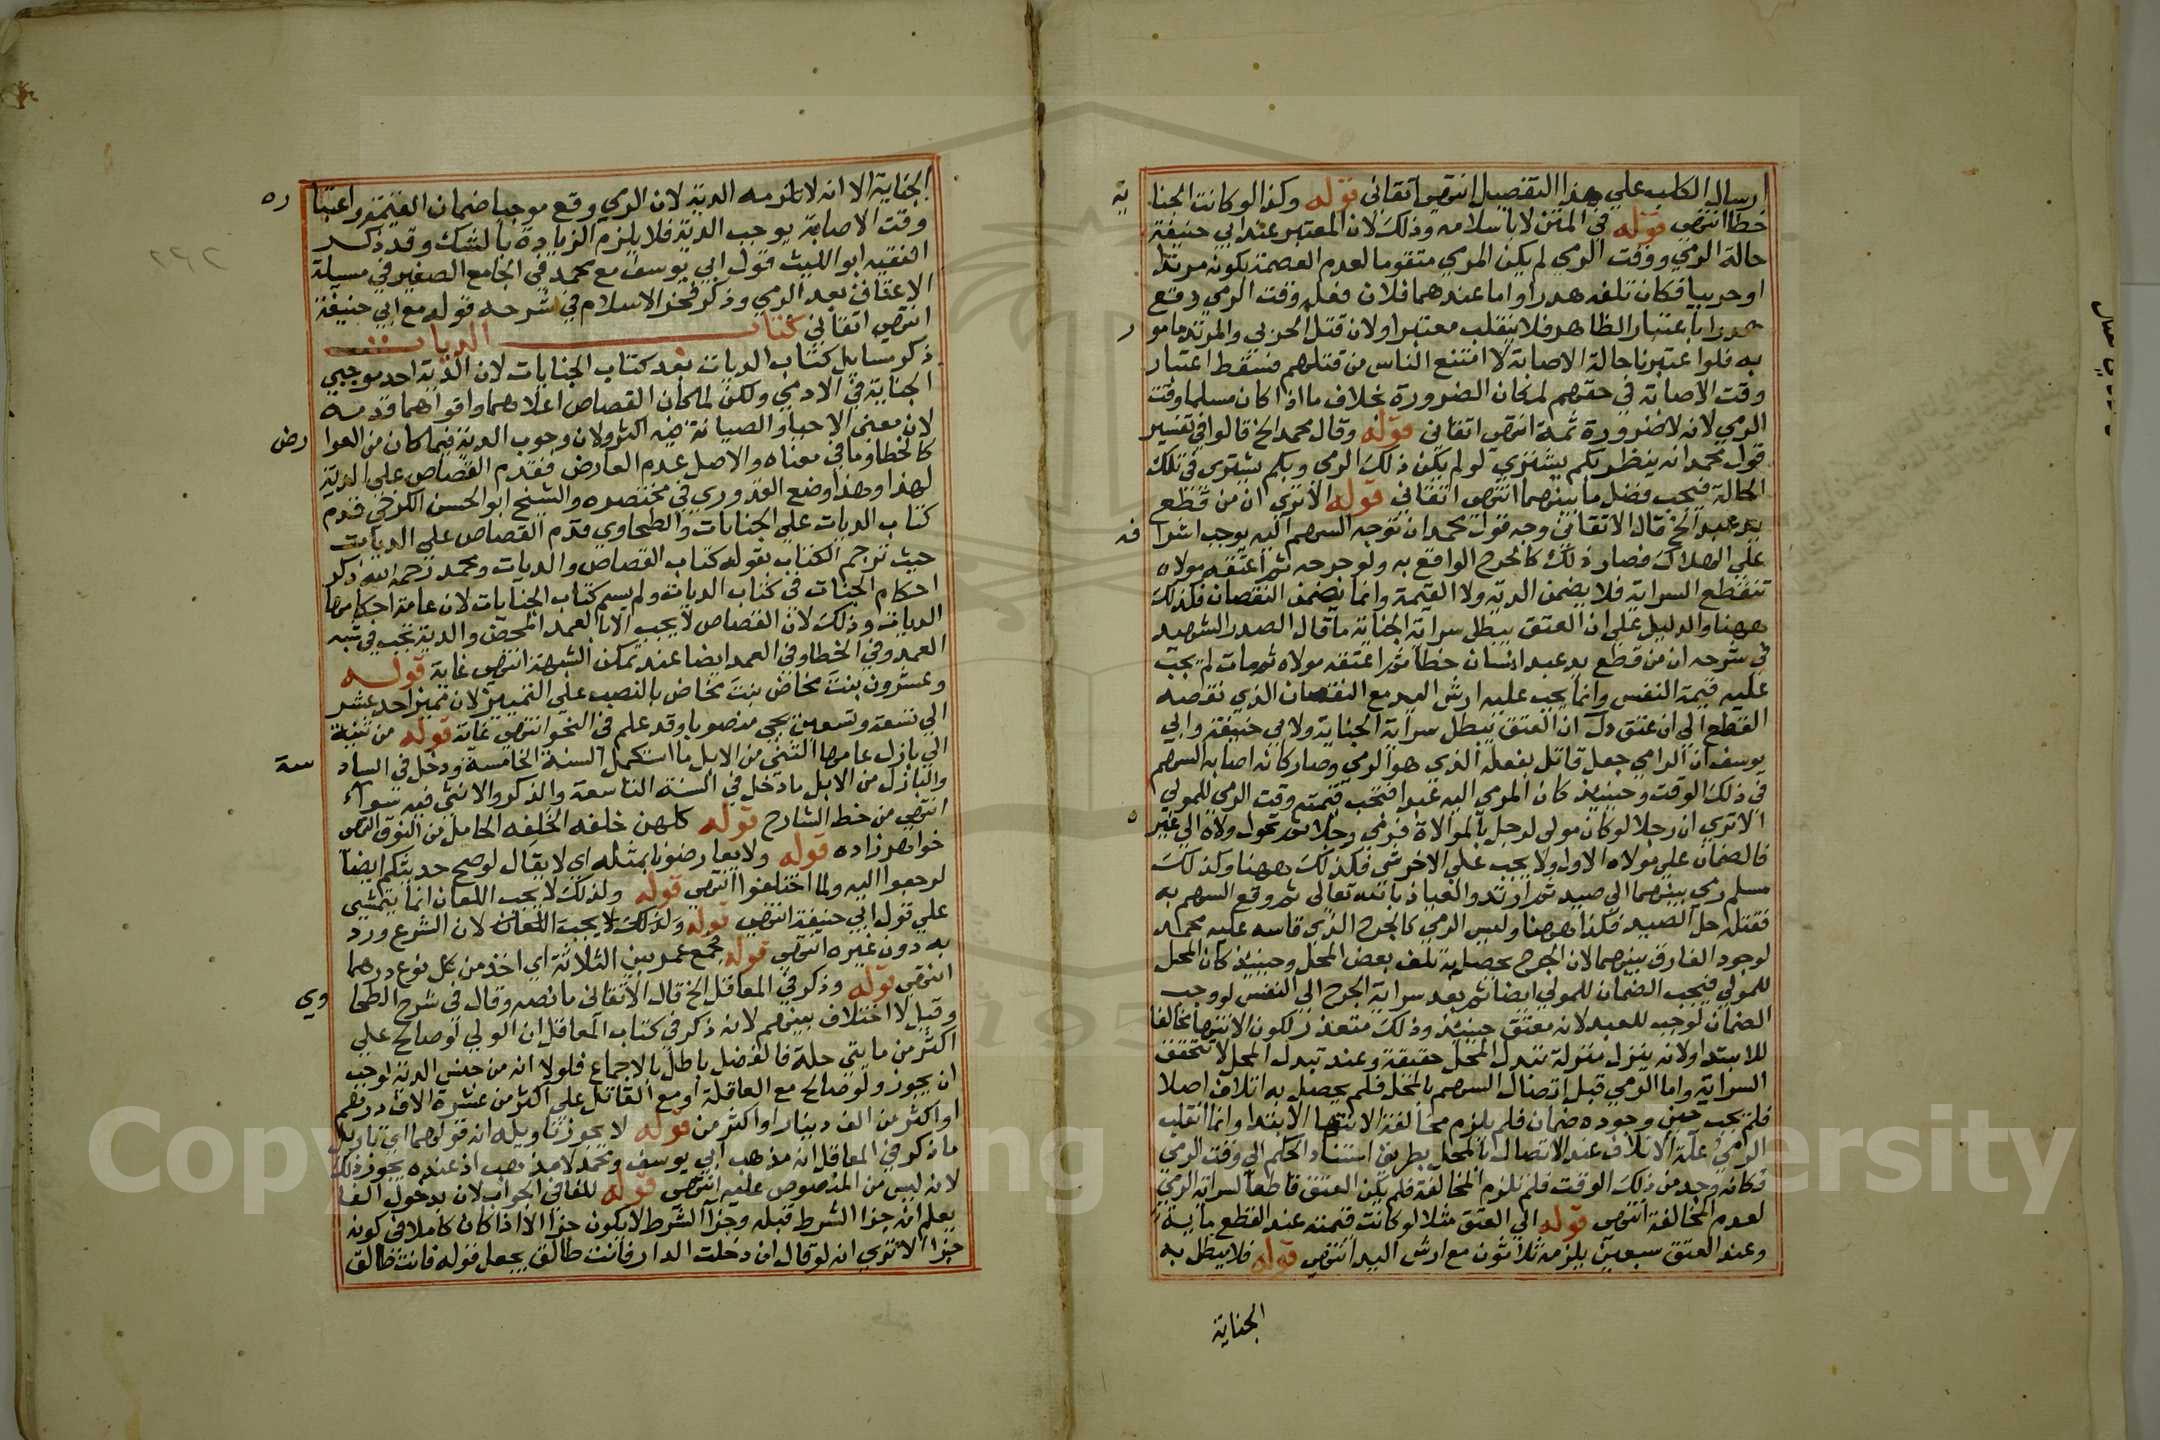 ارسال الكلب علي هذا التفصيل انتهي اتقاني قوله وكذا لو كانت الجنا ية
خطا انتهي قوله في المتن لا باسلامه وذلك لان المعتبر عند ابي حنيفة
حالة الرمي ووقت الرمي لم يكن المرمي متقوما لعدم العصمة بكونه مرتدا
او حربيا فكان تلفه هدرا واما عندهما فلان فعله وقت الرمي وقع
هدرا باعتبار الظاهر فلا ينقلب معتبرا ولان قتل الحربي والمرتد مامو ر
به فلوا عتبرنا حالة الاصابة لا امتنع الناس من قتلهم فسقط اعتبار
وقت الاصابة في حقهم لمكان الضرورة بخلاف ما اذا كان مسلما وقت
الرمي لانه لا ضرورة ثمة انتهي اتقاني قوله وقال محمد الخ قالوا في تفسير
قول محمد انه ينظر بكم يشتري لو لم يكن ذلك الرمي وبكم يشتري في تلك
الحالة فيجب فضل ما بينهما انتهي اتقاني قوله الا تري ان من قطع
يد عبد الخ قال الاتقاني وجه قول محمد ان توجه السهم اليه يوجب اشرا فه
علي الهلاك فصار ذلك كالجرح الواقع به ولو جرحه ثم اعتقه مولاه
تنقطع السراية فلا يضمن الدية ولا القيمة وانما يضمن النقصان فكذلك
ههنا والدليل علي ان العتق يبطل سراية الجناية ما قال الصدر الشهيد
في شرحه ان من قطع يد عبد انسان خطا ثم اعتقه مولاه ثم مات لم يجب
عليه قيمة النفس وانما يجب عليه ارش اليد مع النقصان الذي نقصه
القطع الي ان عتق دل ان العتق يبطل سراية الجناية ولابي حنيفة وابي
يوسف ان الرامي جعل قاتل بفعله الذي هو الرمي وصار كانه اصابه السهم
في ذلك الوقت وحينيذ كان المرمي اليه عبدا فتجب قيمته وقت الرمي للمولي
الا تري ان رجلا لو كان مولي لرجل بالموالاة فرمي رجلا ثم تحول ولاه الي غير ه
فالضمان علي مولاه الاول ولا يجب علي الاخر شي فكذلك ههنا وكذلك
مسلم رمي بسهم الي صيد ثم ارتد والعياذ بالله تعالي ثم وقع السهم به
فقتله حل الصيد فكذا ههنا وليس الرمي كالجرح الذي قاسه عليه محمد
لوجود الفارق بينهما لان الجرح يحصل به تلف بعض المحل وحينيذ كان المحل
للمولي فيجب الضمان للمولي ايضا ثم بعد سراية الجرح الي النفس لو وجب
الضمان لوجب للعبد لانه معتق حينيذ وذلك متعذر لكون الانتها مخالفا
للابتدا ولانه ينزل منزلة تبدل المحل حقيقة وعند تبدل المحل لا تتحقق
السراية واما الرمي قبل اتصال السهم بالمحل فلم يحصل به اتلاف اصلا
فلم يجب حين وجوده ضمان فلم يلزم مخالفة الانتها الابتدا وانما انقلب
الرمي علة الاتلاف عند الاتصال بالمحل بطريق استناد الحكم الي وقت الرمي
فكانه وجد من ذلك الوقت فلم تلزم المخالفة فلم يكن العتق قاطعا لسراية الرمي
لعدم المخالفة انتهي قوله الي العتق مثلا لو كانت قيمته عند القطع ماية
وعند العتق سبعين يلزمه ثلاثون مع ارش اليد انتهي قوله فلا يبطل به
الجناية
الجناية الا انه لا تلزمه الدية لان الرمي وقع موجبا ضمان القيمة واعتبا ره
وقت الاصابة يوجب الدية فلا يلزم الزيادة بالشك وقد ذكر
الفقيه ابو الليث قول ابي يوسف مع محمد في الجامع الصغير في مسيلة
الاعتاق بعد الرمي وذكر فخر الاسلام في شرحه قوله مع ابي حنيفة
انتهي اتقاني كتاب الديات
ذكر مسايل كتاب الديات بعد كتاب الجنايات لان الدية احد موجبي
الجناية في الادمي ولكن لما كان القصاص اعلاهما واقواهما قدمه
لان معني الاحيا والصيانة فيه اكثر ولان وجوب الدية فيما كان من العوا رض
كالخطا وما في معناه والاصل عدم العارض فقدم القصاص علي الدية
لهذا وهذا وضع القدوري في مختصره والشيخ ابو الحسن الكرخي قدم
كتاب الديات علي الجنايات والطحاوي قدم القصاص علي الديات
حيث ترجم الكتاب بقوله كتاب القصاص والديات ومحمد رحمه الله ذكر
احكام الجنايات في كتاب الديات ولم يسم كتاب الجنايات لان عامة احكامها
الديات وذلك لان القصاص لا يجب الا بالعمد المحض والدية تجب في شبه
العمد وفي الخطا وفي العمد ايضا عند تمكن الشبهة انتهي غاية قوله
وعشرون بنت مخاض بنت مخاض بالنصب علي التمييز لان تمييز احد عشر
الي تسعة وتسعين يجي منصوبا وقد علم في النحو انتهي غاية قوله من ثنية
الي بازل عامها الثني من الابل ما استكمل السنة الخامسة ودخل في الساد سة
والبازل من الابل ما دخل في السنة التاسعة والذكر والانثي فيه سوآء
انتهي من خط الشارح قوله كلهن خلفه الخلفه الحامل من النوق انتهي
خواهر زاده قوله ولا يعارضونا بمثله اي لا يقال لو صح حديثكم ايضا
لرجعوا اليه ولما اختلفوا انتهي قوله ولذلك لا يجب اللعان انما يتمشي
علي قول ابي حنيفة انتهي قوله ولذلك لا يجب اللعان لان الشرع ورد
به دون غيره انتهي قوله فجمع عمر بين الثلاثة اي اخذ من كل نوع درهما
انتهي قوله وذكر في المعاقل الخ قال الاتقاني ما نصه وقال في شرح الطحا وي
وقيل لا اختلاف بينهم لانه ذكر في كتاب المعاقل ان الولي لو صالح علي
اكثر من مايتي حلة فالفضل باطل بالاجماع فلولا انه من جنس الدية لوجب
ان يجوز ولو صالح مع العاقلة او مع القاتل علي اكثر من عشرة الاف درهم
او اكثر من الف دينار او اكثر من قوله لا يجوز تاويله انه قولهما اي تاويل
ما ذكر في المعاقل انه مذهب ابي يوسف ومحمد لا مذهب اذ عنده يجوز ذلك
لانه ليس من المنصوص عليه انتهي قوله للفا في الجواب لان بدخول الفا
يعلم انه جزا الشرط قبله وجزآ الشرط لا يكون جزا الا اذا كان كاملا في كونه
جزا الا تري انه لو قال ان دخلت الدار فانت طالق يجعل قوله فانت طالق